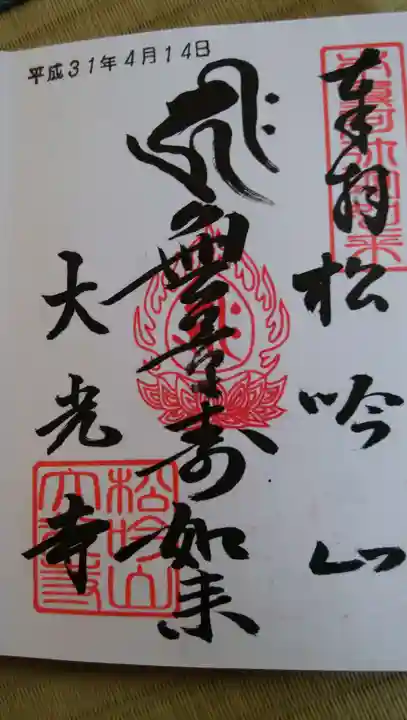 平成31年4月14日
奉拝
松吟山
無量寿如来
大光寺
松吟山
大光寺